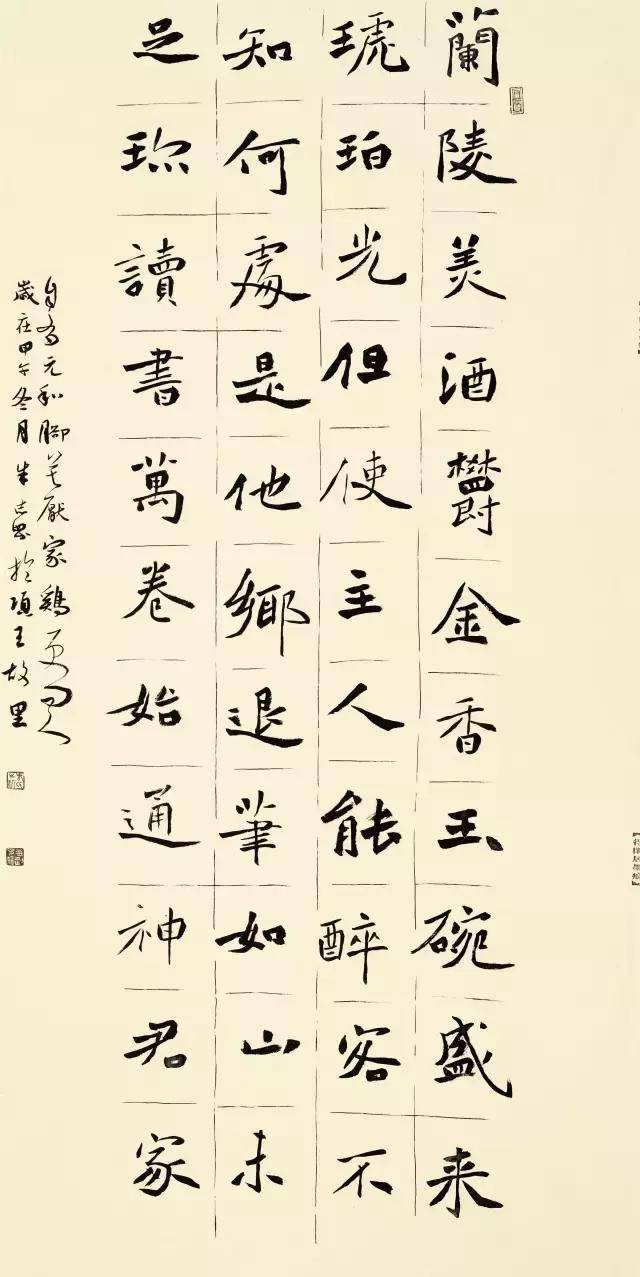 蘭陵美酒欝金香玉碗盛来
琥珀光但使主人能醉客不
知何處是他鄉退筆如山未
足珎讀書萬卷始通神君家
自有元和脚莫厭家鷄更問人
歲在甲午冬月朱於項王故里